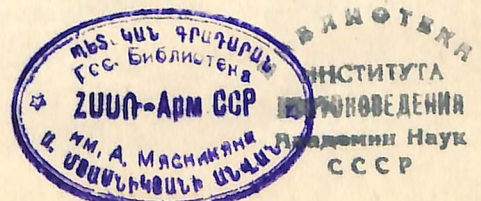 ՊԵՏ. ԿԱՆ ԳՐԱԴԱՐԱՆ
Гос. Библиотека
ՀՍՍՌ-Арм ССР
им. А. Мясникяна
Ա. ՄՅԱՍՆԻԿՅԱՆԻ ԱՆՎԱՆ
БИБЛИОТЕКА
ИНСТИТУТА
ВОСТОКОВЕДЕНИЯ
Академии Наук
СССР